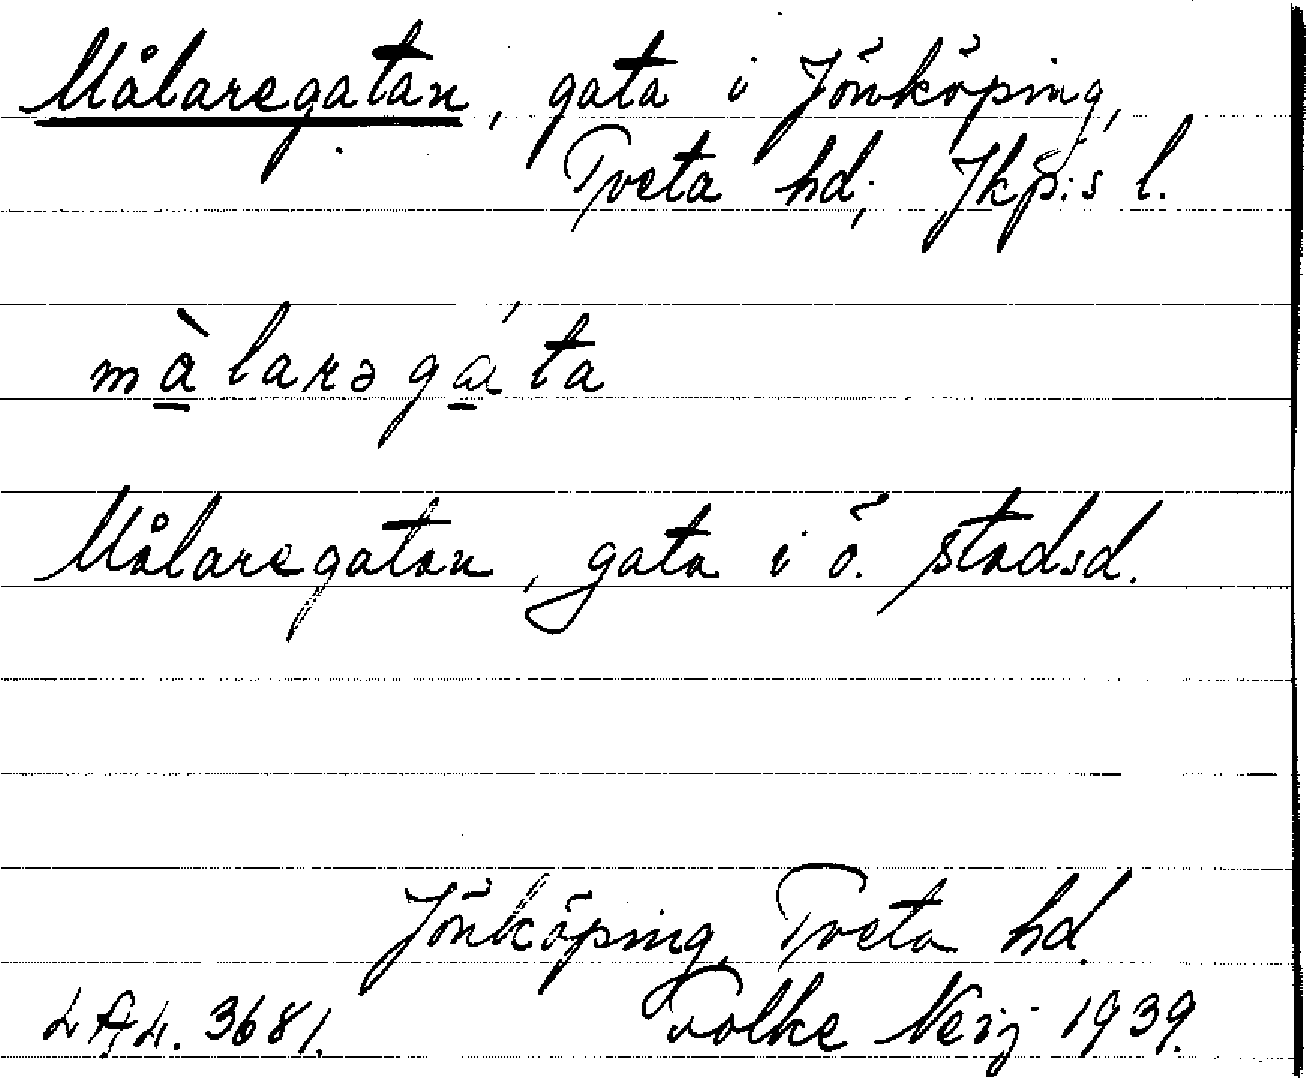 Målaregatan, gata i Jönköping,
Tveta hd, Jkp:s l.
màlarəgáta
Målaregatan, gata i ö. stadsd.
Jönköping, Tveta hd.
LAL. 3681. Folke Neij 1939.